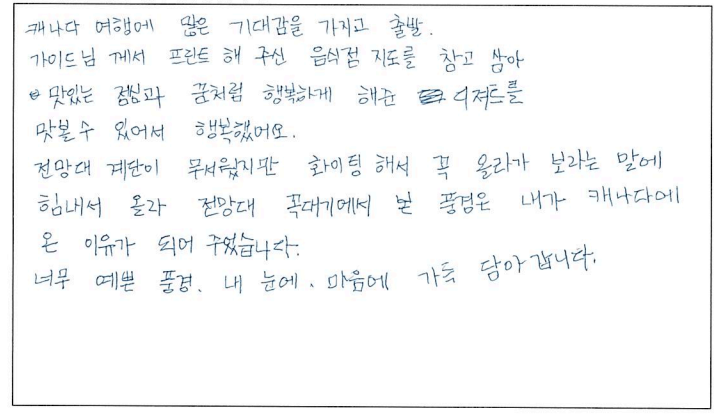 캐나다 여행에 많은 기대감을 가지고 출발.
가이드님 께서 프린트 해 주신 음식점 지도를 참고 삼아
맛있는 점심과 꿈처럼 행복하게 해준 디저트를
맛볼 수 있어서 행복했어요.
전망대 계단이 무서웠지만 화이팅 해서 꼭 올라가 보라는 말에
힘내서 올라 전망대 꼭대기에서 본 풍경은 내가 캐나다에
온 이유가 되어 주었습니다.
너무 예쁜 풍경. 내 눈에. 마음에 가득 담아 갑니다.